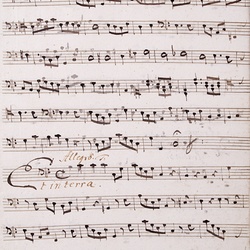 Allegro
Et in terra.